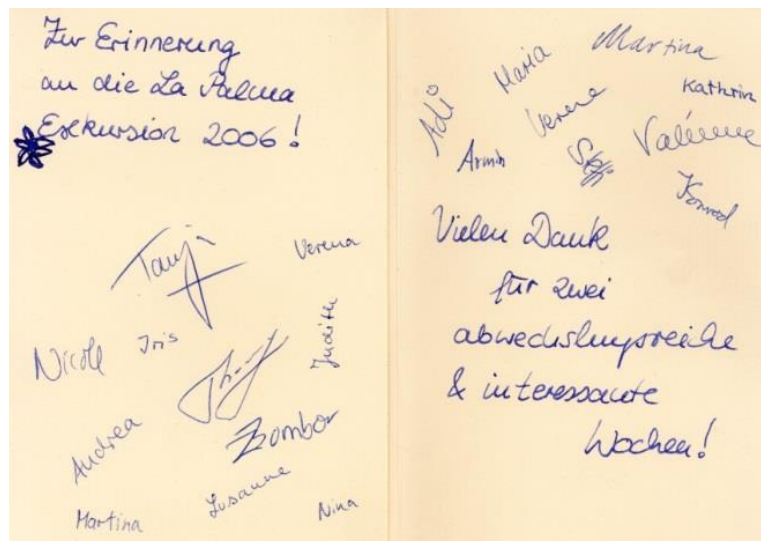 Zur Erinnerung
an die La Palma
Exkursion 2006!
Tanja
Verena
Nicole
Iris
Judith
Zombor
Andrea
Susanne
Martina
Nina
Martina
Maria
Kathrin
Adi
Verena
Valérie
Armin
Steffi
Konrad
Vielen Dank
für zwei
abwechslungsreiche
& interessante
Wochen!